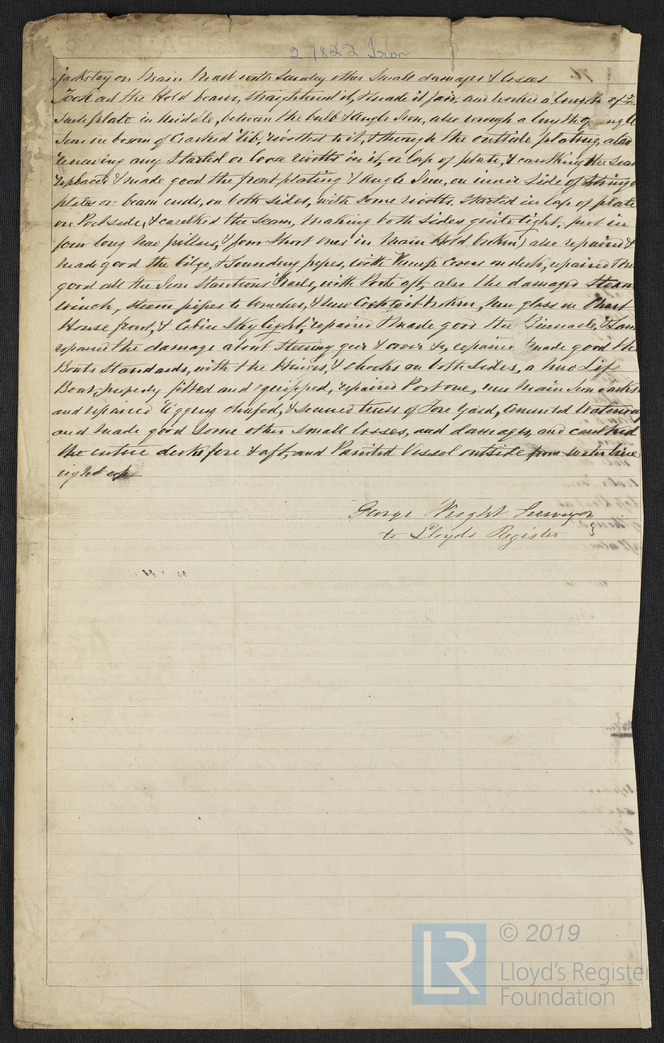 27822 Iron
jackstay on Main Mast with Sundry other Small damages & losses
Took out the Hold beam, straightened it, & made it fair, and worked a length of
plate in middle, between the bulb & Angle Iron, also through a length of Angle
Iron in bosom of Cracked rib, rivetted to it, & through the outside plating, also
renewing any Started or loose rivetts in it, or lap of plate, & caulking the Seam
replaced & made good the front plating & Angle Iron, on inner Side of String
plate on beam ends, on both sides, with Some rivetts, Started in lap of plate
on Port side, & caulked the Seam, making both Sides quite tight, put in
four long new pillars, & four Short ones in Main Hold broken, also repaired &
made good the bilge, & Sounding pipes, with Pump Covers on deck, repaired &
good all the Iron Stantions & rails, with Ports aft, also the damaged Steam
winch, steam pipes to winches, & new Cocktail broken, new glass in Chart
House front, & Cabin Sky light, repaired & made good the Binnacle,
repaired the damage about Steering gear & cover &c, repaired & made good the
Boats Standards, with the & chocks on both Sides, a new Life
Boat, properly fitted and equipped, repaired Port one, new Main Iron
and repaired rigging chafed, & secured truss of Fore Yard, Cemented Waterway
and made good Some other Small losses, and damages, and caulked
the entire decks fore & aft, and Painted Vessel outside from water line
right up
George Wright Surveyor
to Lloyds Register
LR
© 2019
Lloyd's Register
Foundation